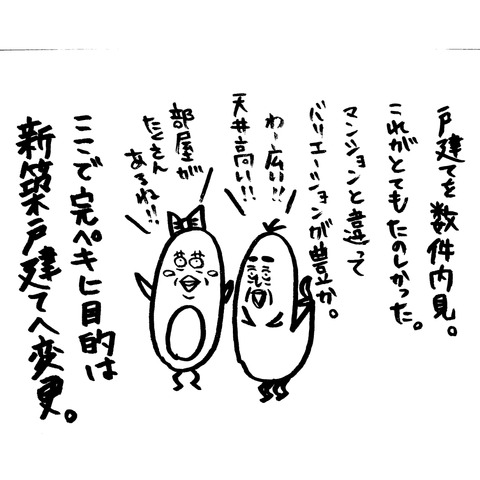 戸建てを数件内見。
これがとてもたのしかった。
マンションと違って
バリエーションが豊か。
わー広い!!
天井高い!!
部屋が
たくさん
あるね!!
ここで完ペキに目的は
新築戸建てへ変更。